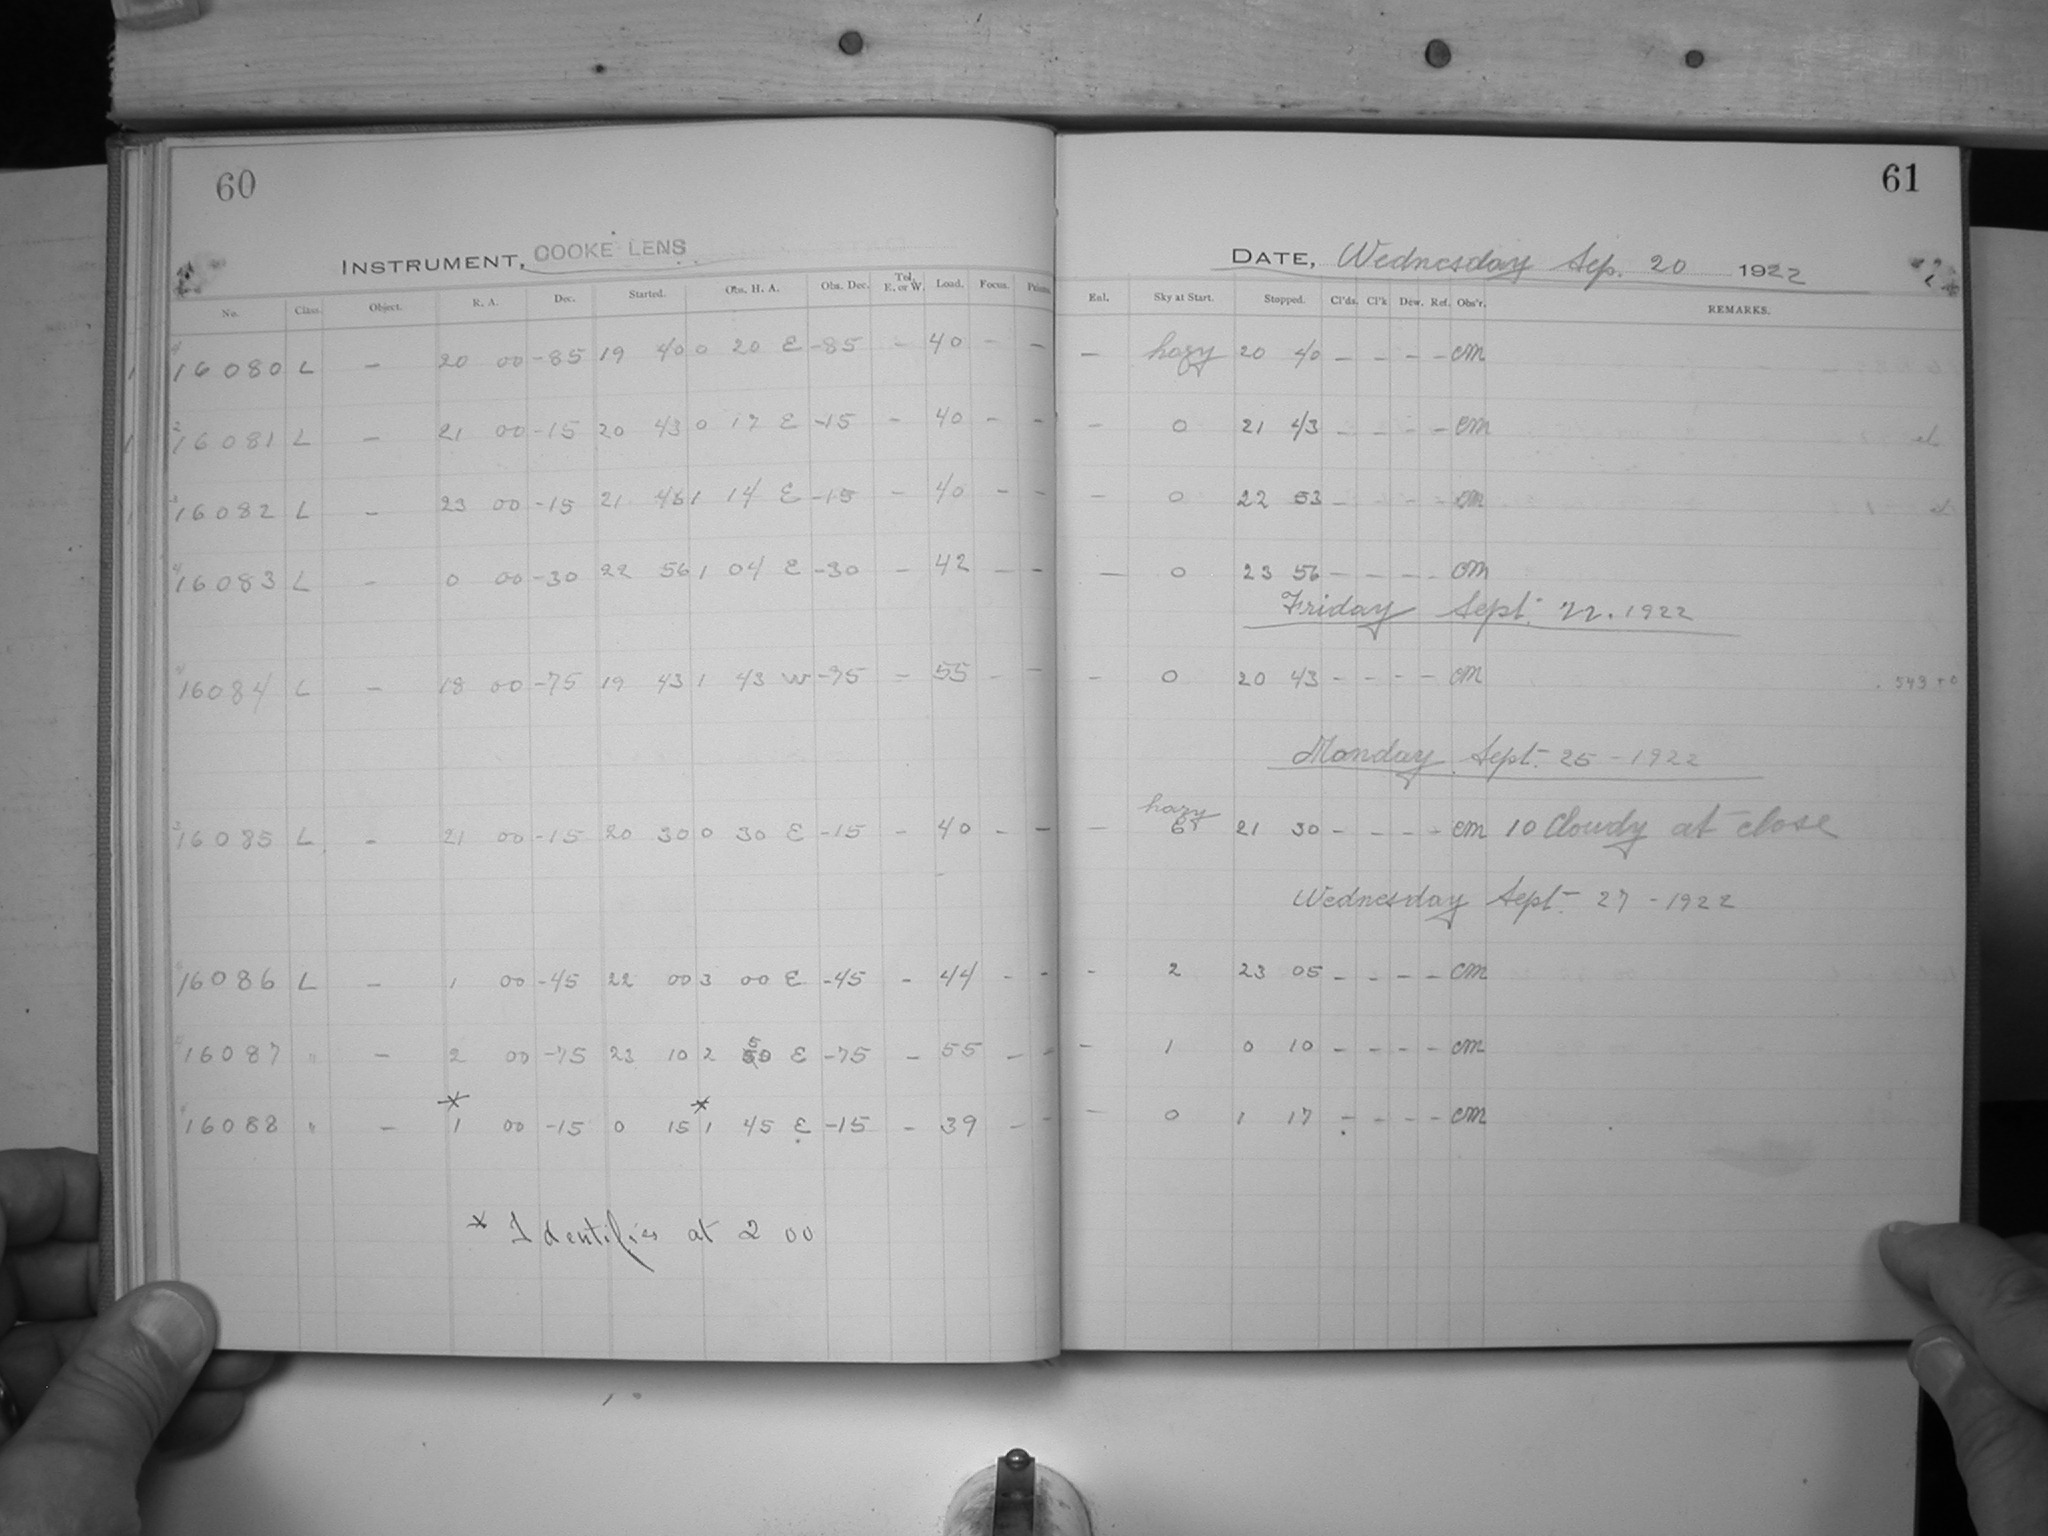 60
INSTRUMENT, COOKE LENS
No. Class. Object. R. A. Dec. Started. Obs. H. A. Obs. Dec. Tel. E. or W. Load. Focus.
16080 L – 20 00 -85 19 40 0 20 E -85 – 40 – –
16081 L – 21 00 -15 20 43 0 17 E -15 – 40 – –
16082 L – 23 00 -15 21 46 1 14 E -15 – 40 – –
16083 L – 0 00 -30 22 56 1 04 E -30 – 42 – –
16084 L – 18 00 -75 19 43 1 43 W -75 – 55 – –
16085 L – 21 00 -15 20 30 0 30 E -15 – 40 – –
16086 L – 1 00 -45 22 00 3 00 E -45 – 44 – –
16087 " – 2 00 -75 23 10 2 50 E -75 – 55 – –
16088 " – * 1 00 -15 0 15 * 1 45 E -15 – 39 – –
* Identifies at 2 00
61
DATE, Wednesday Sep. 20 1922
Enl. Sky at Start. Stopped. Cl'ds. Cl'k Dew. Ref. Obs'r. REMARKS.
– hazy 20 40 – – – – CM
– 0 21 43 – – – – CM
– 0 22 53 – – – – CM
– 0 23 56 – – – – CM
Friday Sept. 22. 1922
– 0 20 43 – – – – CM
Monday Sept. 25 - 1922
– hazy 21 30 – – – – CM 10 Cloudy at close
Wednesday Sept. 27 - 1922
– 2 23 05 – – – – CM
– 1 0 10 – – – – CM
– 0 1 17 – – – – CM